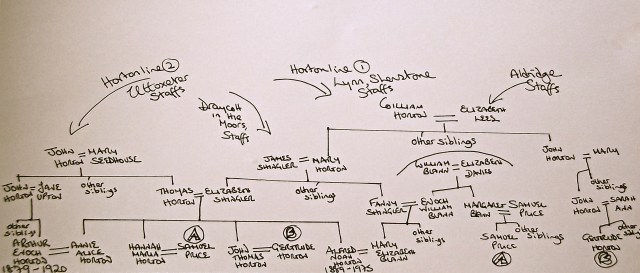 Horton line ②
Uttoxeter
Staffs
Horton line ①
Lynn, Shenstone
Staffs
Aldridge
Staffs
Draycott
in the
Moors,
Staffs
WILLIAM = ELIZABETH
HORTON LEES
other siblings
JOHN = MARY
HORTON
JOHN = MARY
HORTON SEDHOUSE
JAMES = MARY
SHINGLER HORTON
WILLIAM = ELIZABETH
BLANN DAVIS
JOHN = JANE
HORTON UPTON
other
siblings
THOMAS = ELIZABETH
HORTON SHINGLER
other
siblings
FANNY = ENOCH
SHINGLER WILLIAM
BLANN
MARGARET = SAMUEL
BLANN PRICE
other
siblings
JOHN = SARAH
HORTON ANN
other
siblings
ARTHUR = ANNIE
ENOCH ALICE
HORTON HORTON
1879-1920
HANNAH = SAMUEL
MARIA PRICE
HORTON
Ⓐ
JOHN = GERTRUDE
THOMAS HORTON
HORTON
Ⓑ
ALFRED = MARY
NOAH ELIZABETH
HORTON BLANN
1889-1975
other
siblings
SAMUEL
PRICE
Ⓐ
other siblings
GERTRUDE
HORTON
Ⓑ